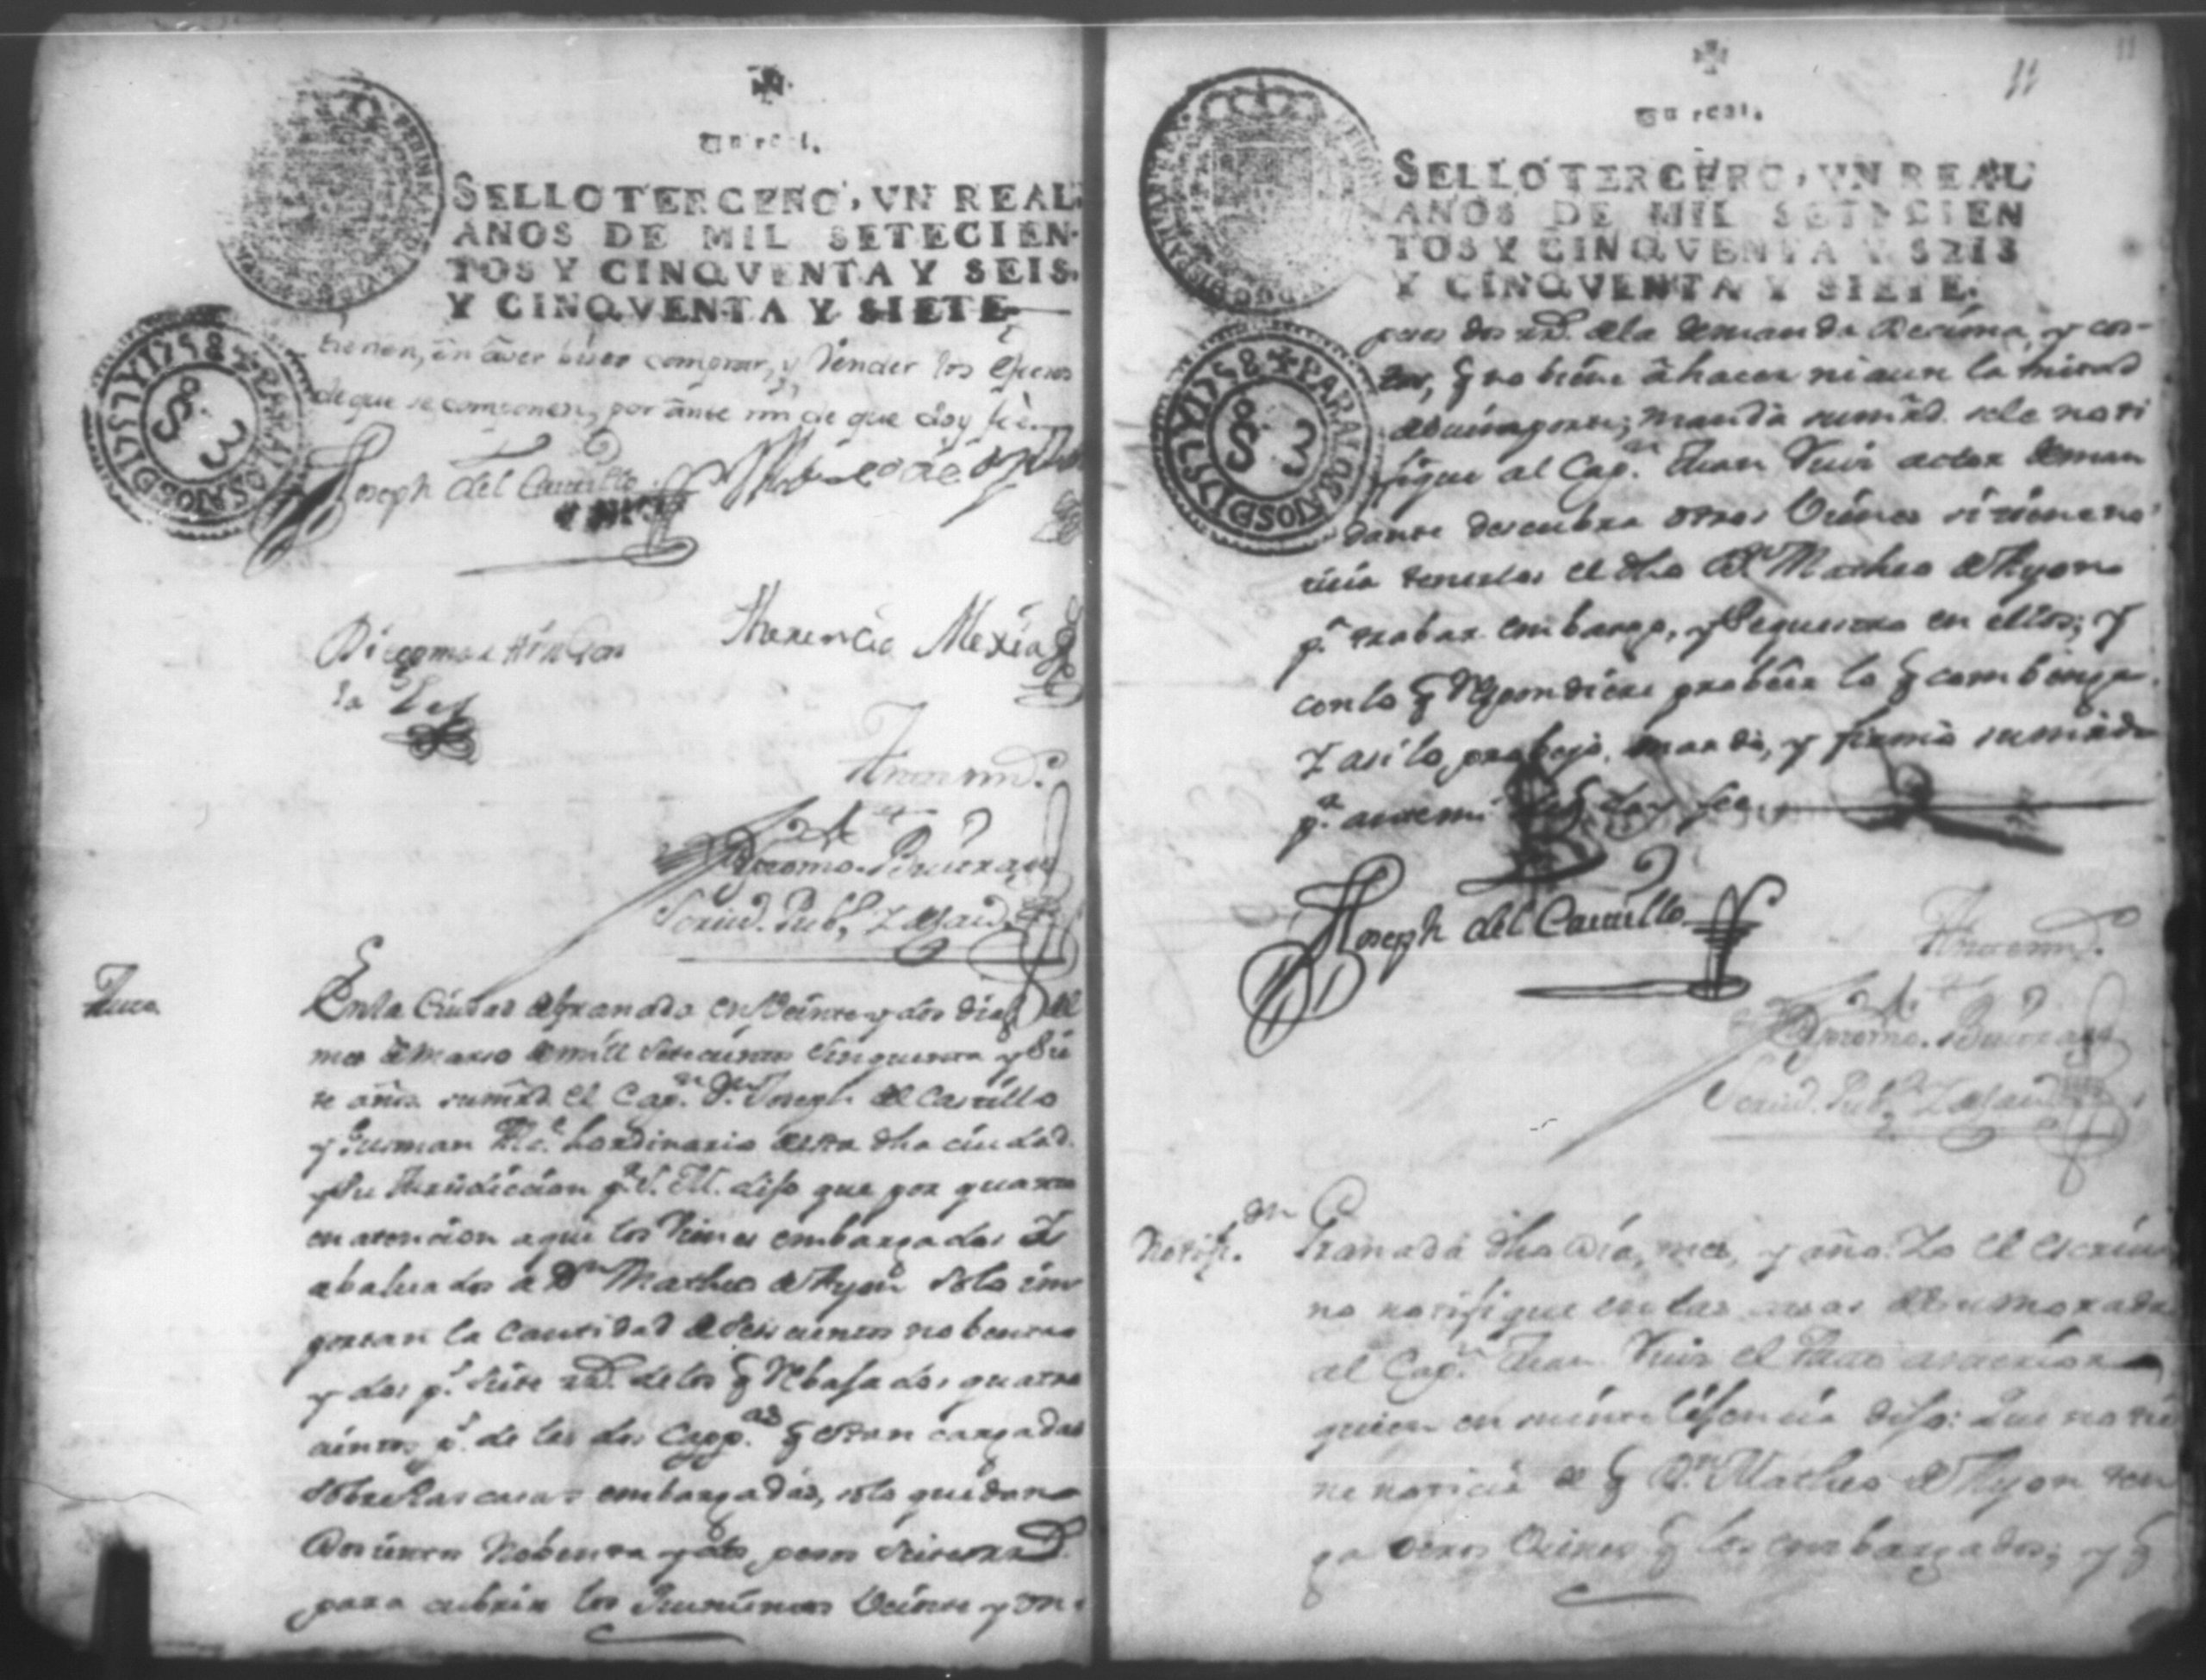 Un real.
SELLO TERCERO, VN REAL
AÑOS DE MIL SETECIEN-
TOS Y CINQVENTA Y SEIS,
Y CINQVENTA Y SIETE
PARALOSAÑOSD1757Y1758
tienen, en aver bisto comprar, y Vender los efectos
de que se componen, por ante mi de que doy fee.
Joseph del Castillo
y Gusman
Diego martin Gon
sa Les
Florencio Mexia
Ante mi.
Scriv. Pub. Y de Gov.
Auto
En la Ciudad de Granada en Veinte y dos dias del
mes de Marso de mill Setecientos Sinquenta y Sie
te años. su mrd. el Cap.n D.n Joseph del Castillo
y Gusman Alc.e hordinario de esta dha ciudad
y Su Jurisdiccion p.r S. M. dijo que por quanto
en atencion a que los Vienes embargados Y
abaluados á D.n Matheo de Ayon solo im
portan la Cantidad de Seis cientos nobenta
y dos p.s siete rr.s de los q Rebajados quatro
cientos p.s de las dos Capp.as q estan cargadas
Sobre las casas embargadas, solo quedan
Dosientos Nobenta y dos pesos siete rr.s
para cubrir los Veinte y un
11
11
Un real.
SELLO TERCERO, VN REAL
AÑOS DE MIL SETECIEN
TOS Y CINQVENTA Y SEIS
Y CINQVENTA Y SIETE.
PARALOSAÑOSD1757Y1758
pesos dos rr.s de la demanda Desima, y cos-
tas, q no biene á hacer ni aun la mitad
de su importe; mandó su mrd. se le noti
fique al Cap.n Juan Ruis actor deman
dante descubra otros Vienes si tiene no
ticia tenerlos el dho D.n Matheo de Ayon
p.a trabar embargo, y Sequestro en ellos; y
con lo q Respondiere probeer lo q combenga.
Y asi lo probeyó, mandó, y firmó su mrd.
p.r ante mi de q doy fee
Joseph del Castillo
Ante mi.
Scriv. Pub. Y de Gov.
Notif.on
Granada dho dia, mes, y año. Yo el escriva
no notifique en las casas de su morada
al Cap.n Juan Ruis el Auto de arriba
quien en su inteligencia dijo: Que no tie
ne noticia de q D.n Matheo de Ayon ten
ga otros Vienes q los embargados; y q